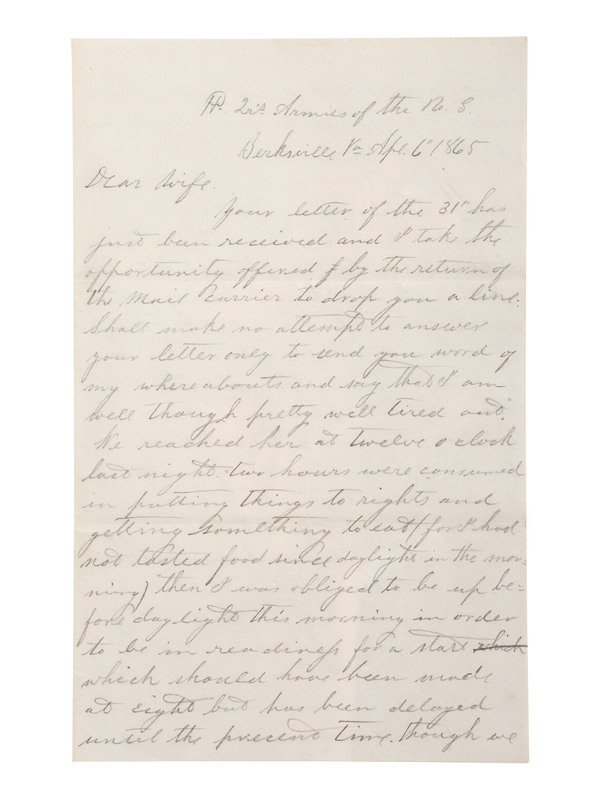 Hd. Qrs Armies of the U. S.
Berksville Va Apl. 6" 1865
Dear Wife.
Your letter of the 31" has
just been received and I take the
opportunity offered f by the return of
the Mail Carrier to drop you a line.
Shall make no attempt to answer
your letter only to send you word of
my whereabouts and say that I am
well though pretty well tired out.
We reached her at twelve oclock
last night. two hours were consumed
in putting things to rights and
getting something to eat (for I had
not tasted food since daylight in the mor-
ning) then I was obliged to be up be-
fore daylight this morning in order
to be in readiness for a start which
which should have been made
at eight but has been delayed
until the present time. though we